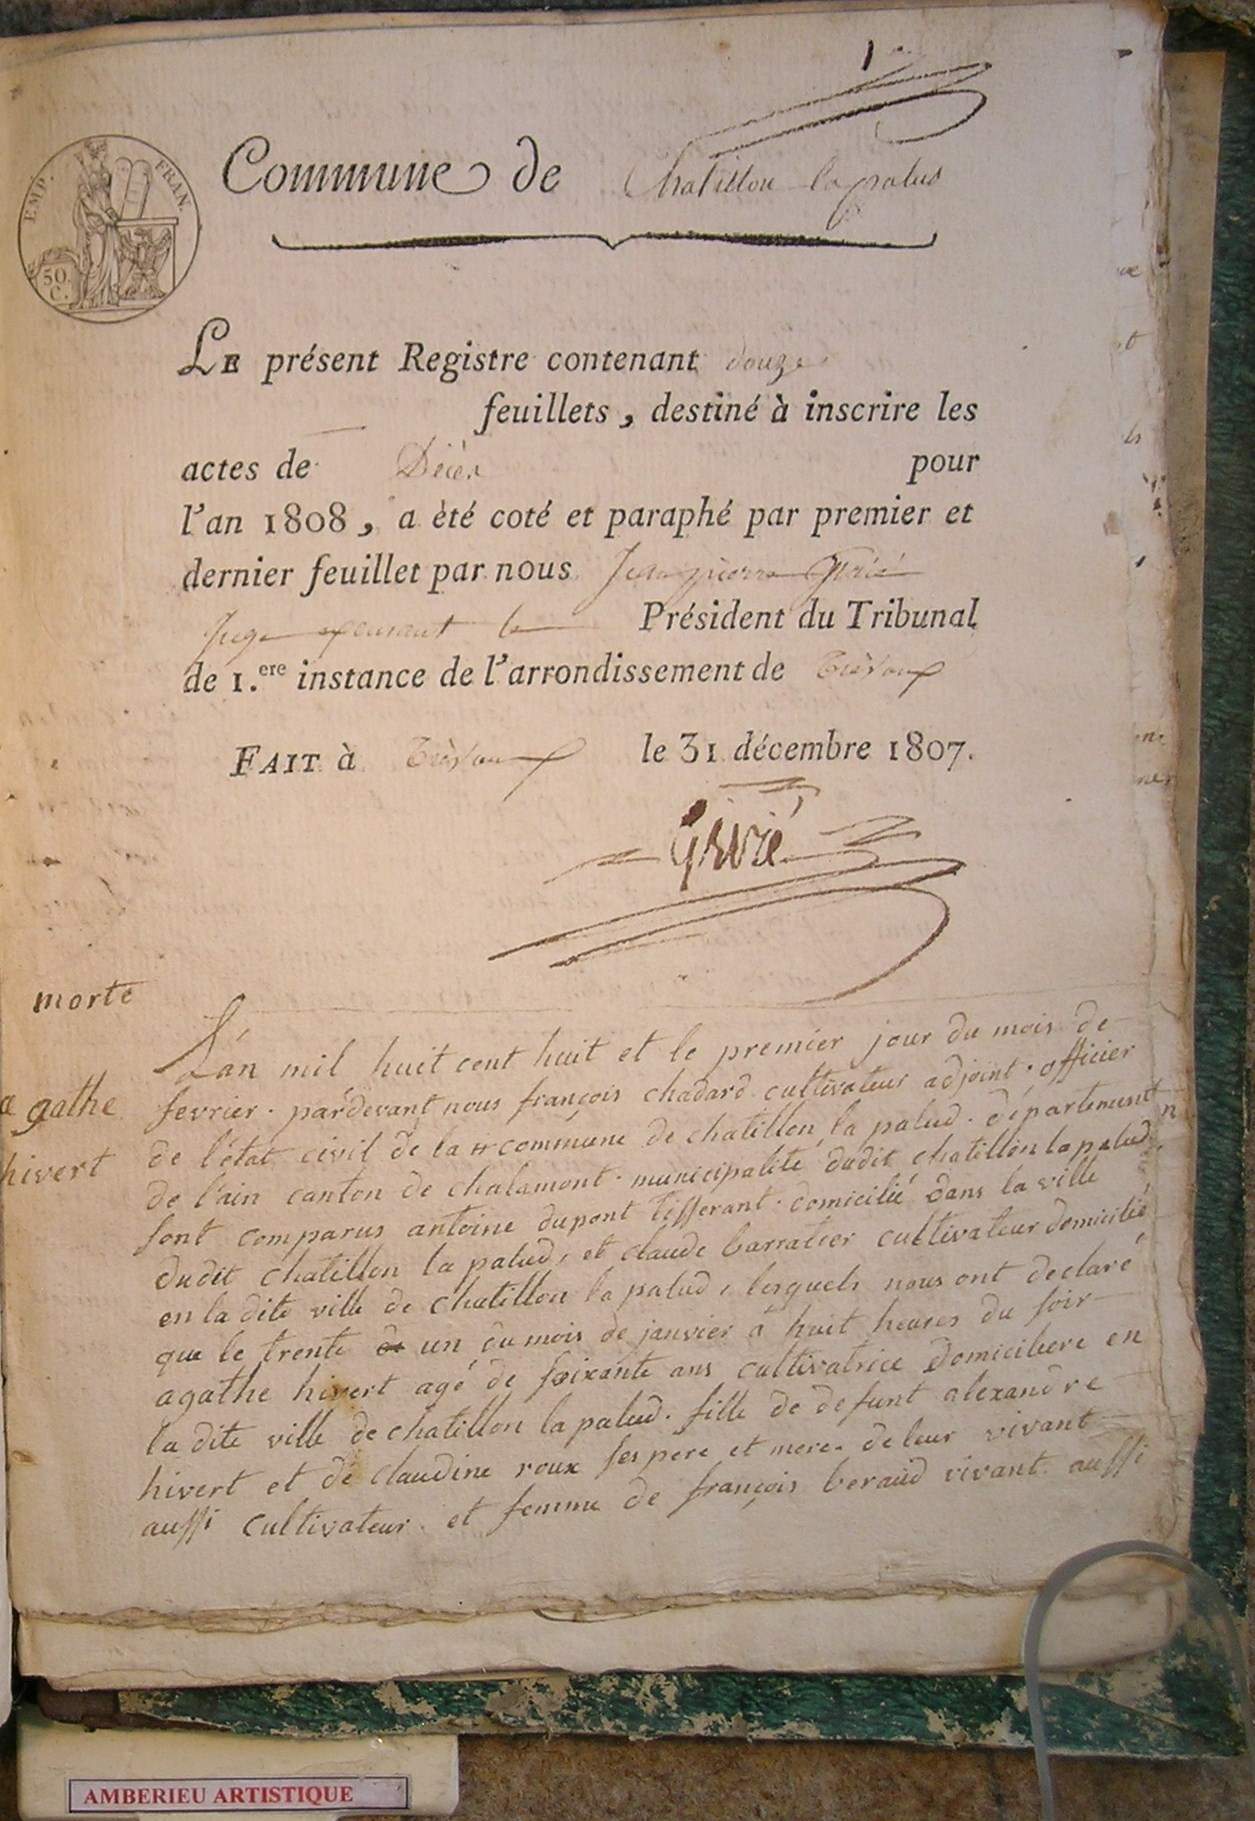 1er
EMP. FRAN.
50 C.
Commune de Chatillon la palud
LE présent Registre contenant douze
feuillets, destiné à inscrire les
actes de Décès pour
l'an 1808, a èté coté et paraphé par premier et
dernier feuillet par nous Jean pierre Grivié
Juge exerçant le Président du Tribunal
de 1.ere instance de l'arrondissement de Trévoux
FAIT à Trévoux le 31 décembre 1807.
morte
agathe
hivert
L'an mil huit cent huit et le premier jour du mois de
fevrier. pardevant nous françois chadard cultivateur adjoint. officier
de l'état civil de la commune de chatillon la palud. département
de l'ain canton de chalamont. municipalité dudit chatillon la palud
sont comparus antoine dupont tisserant. domicilié dans la ville
dudit chatillon la palud, et claude barratier cultivateur domicilié
en la dite ville de chatillon la palud, lesquels nous ont declaré
que le trente un du mois de janvier à huit heures du soir
agathe hivert agé de soixante ans cultivatrice domiciliere en
la dite ville de chatillon la palud. fille de defunt alexandre
hivert et de claudine roux ses pere et mere. de leur vivant
aussi cultivateur. et femme de françois beraud vivant aussi
AMBERIEU ARTISTIQUE